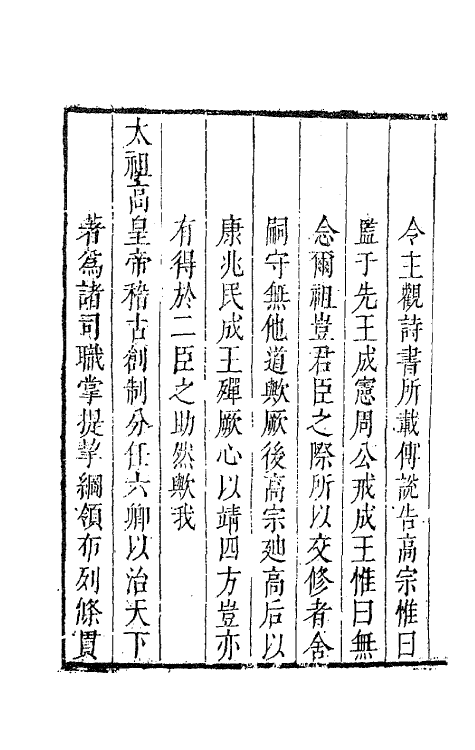 令主觀詩書所載傅說告高宗惟曰
監于先王成憲周公戒成王惟曰無
念爾祖豈君臣之際所以交修者舍
嗣守無他道歟厥後高宗廸高后以
康兆民成王殫厥心以靖四方豈亦
有得於二臣之助然歟我
太祖高皇帝稽古創制分任六卿以治天下
著爲諸司職掌提挈綱領布列條貫